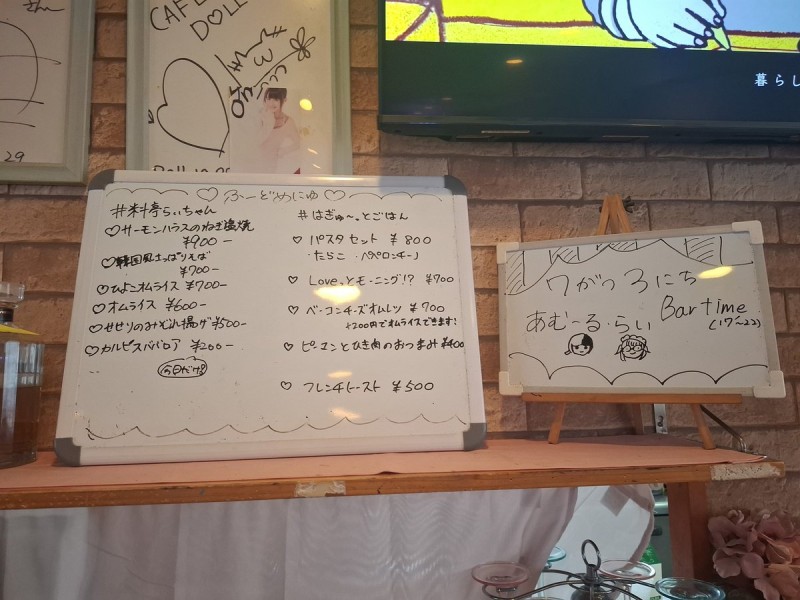 CAFE
DOLL
29
暮らし
♡ ふーどめにゅ ♡
#料亭らぃちゃん
♡サーモンハラスのねぎ塩焼
¥900-
♡韓国風さっぱりえび
¥700-
♡ひよこオムライス ¥700-
♡オムライス ¥600-
♡せせりのみぞれ揚げ ¥500-
♡カルピスババロア ¥200-
今日だけ!
#はぎゅ〜っとごはん
♡ パスタセット ¥800
・たらこ ・ペペロンチーノ
♡ Loveっとモーニング!? ¥700
♡ ベーコンチーズオムレツ ¥700
+200円でオムライスできます!
♡ ピーマンとひき肉のおつまみ ¥400
♡ フレンチトースト ¥500
7がつ3にち
あむーる・らぃ Bar time
(17〜22)